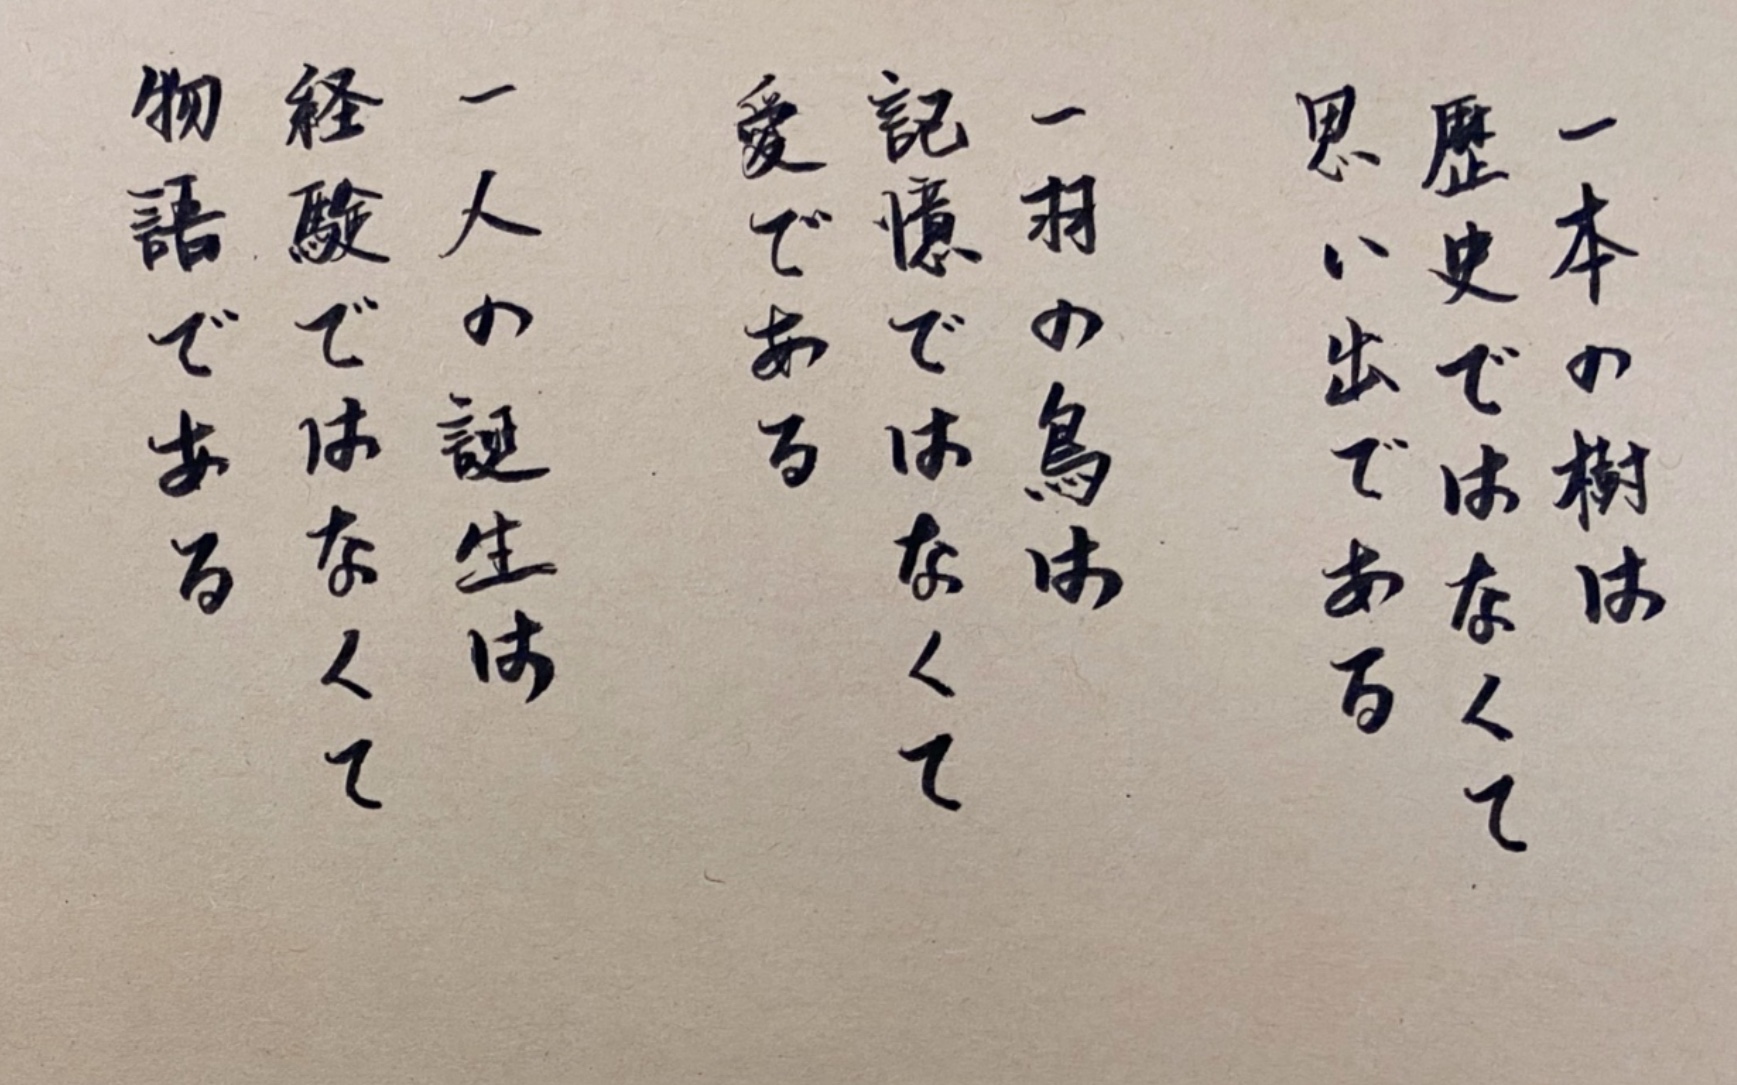 一本の樹は
歴史ではなくて
思い出である
一羽の鳥は
記憶ではなくて
愛である
一人の誕生は
経験ではなくて
物語である